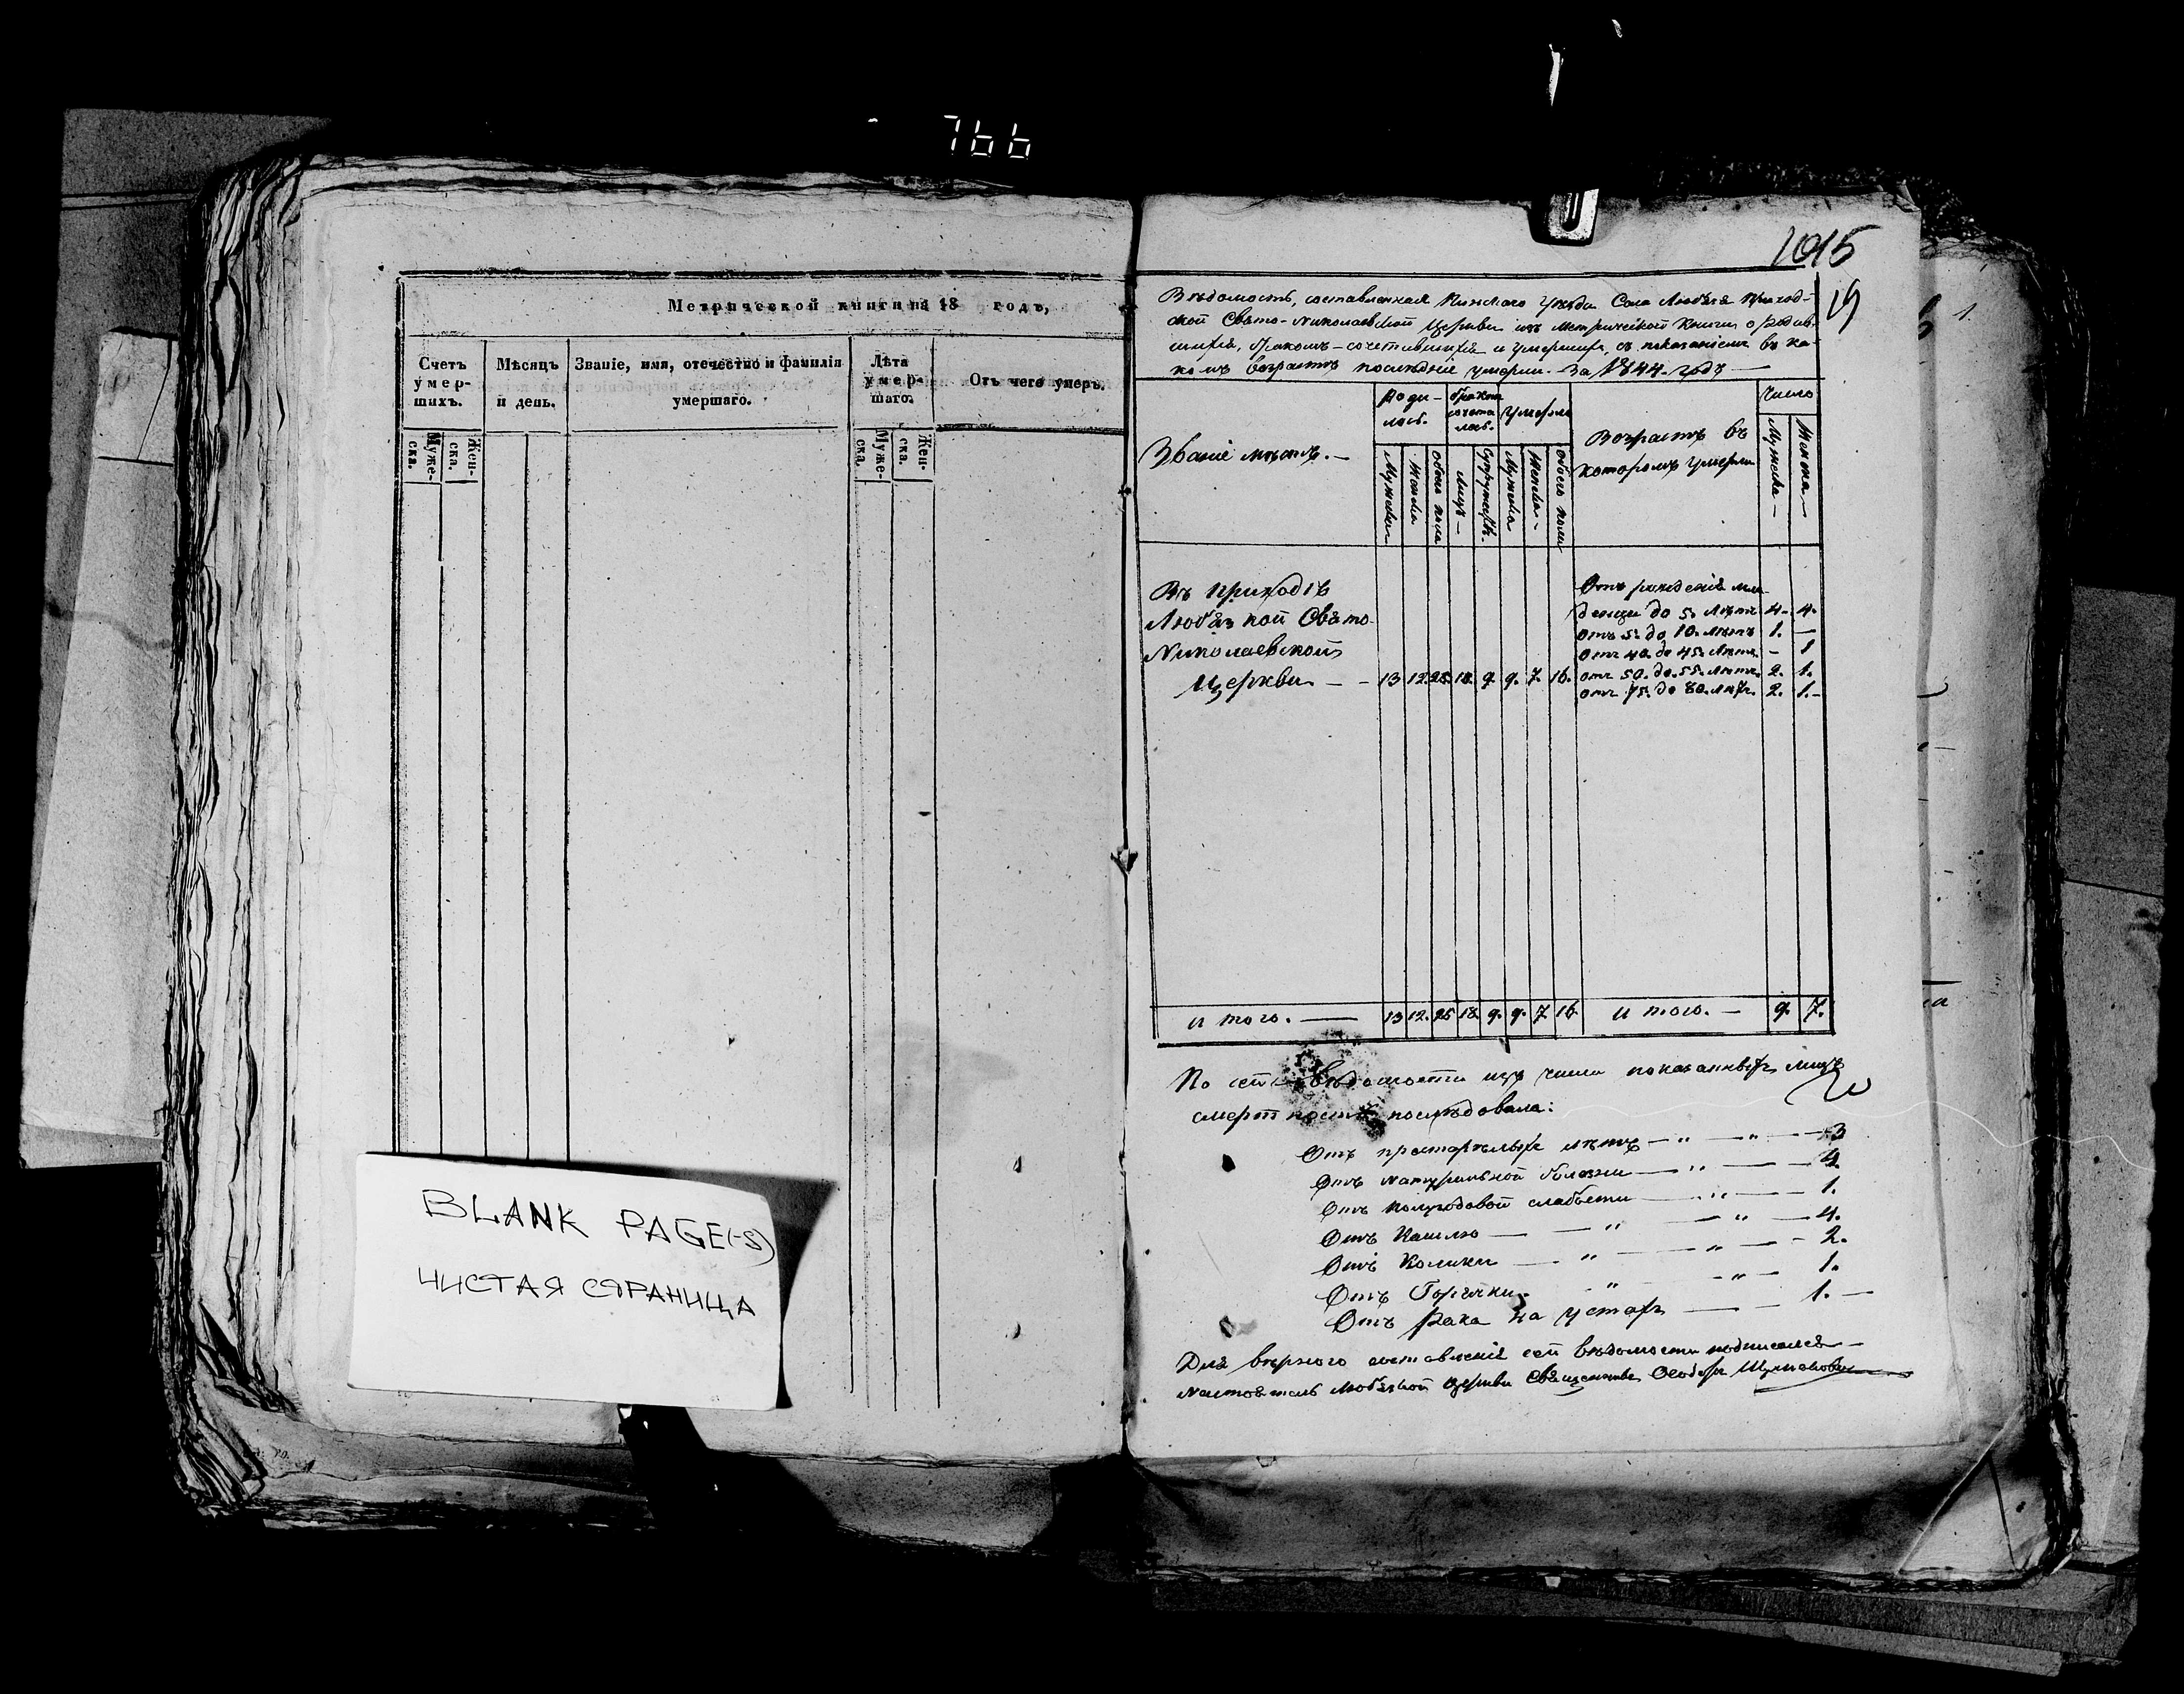 766
Метрической книги на 18 годъ,
Счетъ умер-шихъ.
Мѣсяцъ и день.
Званіе, имя, отечество и фамилія умершаго.
Лѣта умер-шаго.
Отъ чего умеръ.
Муже-ска.
Жен-ска.
Муже-ска.
Жен-ска.
BLANK PAGE(-S)
ЧИСТАЯ СТРАНИЦА
1015
19
Вѣдомость, составленная Пинскаго Уѣзда Села Любязя Приход-
ской Свято-Николаевской Церкви изъ Метрической Книги о родив-
шихся, бракомъ-сочетавшихся и умершихъ, съ показаніемъ въ ка-
комъ возрастѣ послѣдніе умерли. За 1844. годъ —
Званіе мѣстъ. —
Роди-лось.
Бракомъ сочеталось.
Умерло
Возрастъ въ которомъ умерли
Число
Мужеска
Женска
обоего пола
Лицъ —
Супружествъ.
Мужеска
Женска
обоего пола
Мужеска —
Женска —
Въ Приходѣ
Любязкой Свято-
Николаевской
Церкви — — 13 12. 25. 18. 9. 9. 7. 16.
Отъ рожденія мла-
денцы до 5. лѣтъ 4. 4.
отъ 5. до 10. лѣтъ 1. —
отъ 40. до 45. лѣтъ — 1
отъ 50. до 55. лѣтъ. 2. 1.
отъ 75. до 80. лѣтъ. 2. 1. —
Итого. — 13 12. 25 18. 9. 9. 7. 16. Итого. — 9. 7.
По сей Вѣдомости изъ числа показанныхъ лицъ
смерть послѣдовала:
Отъ престарѣлыхъ лѣтъ — " — " — 3
Отъ натуральной болезни — " — 4.
Отъ слабости — " — 1.
Отъ Кашлю — " — " — 4.
Отъ Колики — " — " — 2.
Отъ Горячки. " — " — 1.
Отъ Рака на устахъ — — 1. —
Для вѣрного составленія сей вѣдомости подписался —
Настоятель Любязкой Церкви Священникъ